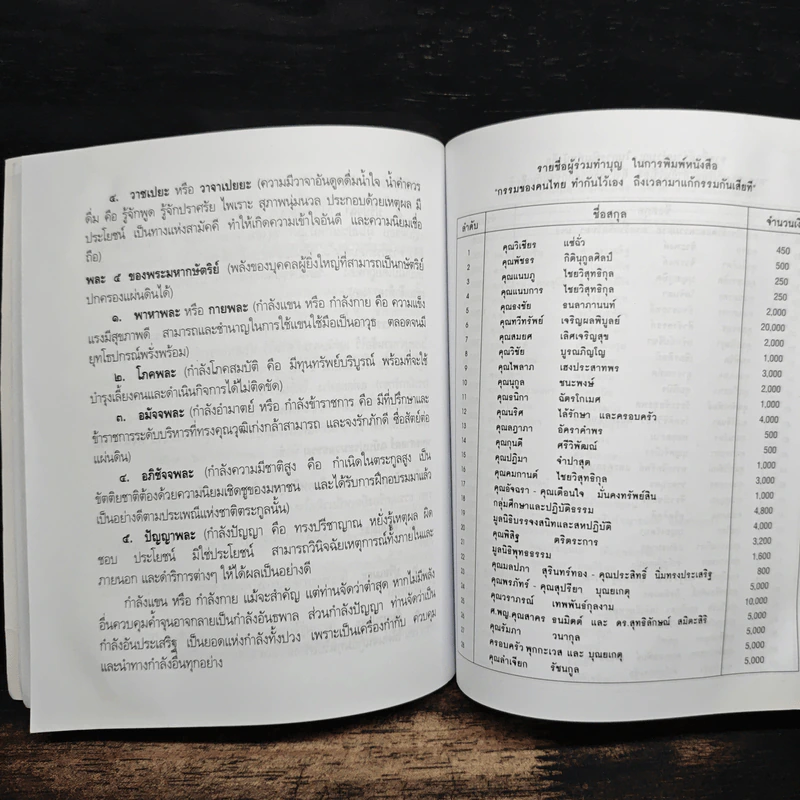 ๕. วาชเปยะ หรือ วาจาเปยยะ (ความมีวาจาอันดูดดื่มน้ำใจ น้ำคำควร
ดื่ม คือ รู้จักพูด รู้จักปราศรัย ไพเราะ สุภาพนุ่มนวล ประกอบด้วยเหตุผล มี
ประโยชน์ เป็นทางแห่งสามัคคี ทำให้เกิดความเข้าใจอันดี และความนิยมเชื่อ
ถือ)
พละ ๕ ของพระมหากษัตริย์ (พลังของบุคคลผู้ยิ่งใหญ่ที่สามารถเป็นกษัตริย์
ปกครองแผ่นดินได้)
๑. พาหาพละ หรือ กายพละ (กำลังแขน หรือ กำลังกาย คือ ความแข็ง
แรงมีสุขภาพดี สามารถและชำนาญในการใช้แขนใช้มือเป็นอาวุธ ตลอดจนมี
ยุทโธปกรณ์พรั่งพร้อม)
๒. โภคพละ (กำลังโภคสมบัติ คือ มีทุนทรัพย์บริบูรณ์ พร้อมที่จะใช้
บำรุงเลี้ยงคนและดำเนินกิจการได้ไม่ติดขัด)
๓. อมัจจพละ (กำลังอำมาตย์ หรือ กำลังข้าราชการ คือ มีที่ปรึกษาและ
ข้าราชการระดับบริหารที่ทรงคุณวุฒิเก่งกล้าสามารถ และจงรักภักดี ซื่อสัตย์ต่อ
แผ่นดิน)
๔. อภิชัจจพละ (กำลังความมีชาติสูง คือ กำเนิดในตระกูลสูง เป็น
ขัตติยชาติต้องด้วยความนิยมเชิดชูของมหาชน และได้รับการฝึกอบรมมาแล้ว
เป็นอย่างดีตามประเพณีแห่งชาติตระกูลนั้น)
๕. ปัญญาพละ (กำลังปัญญา คือ ทรงปรีชาญาณ หยั่งรู้เหตุผล ผิด
ชอบ ประโยชน์ มิใช่ประโยชน์ สามารถวินิจฉัยเหตุการณ์ทั้งภายในและ
ภายนอก และดำริการต่างๆ ให้ได้ผลเป็นอย่างดี
กำลังแขน หรือ กำลังกาย แม้จะสำคัญ แต่ท่านจัดว่าต่ำสุด หากไม่มีพลัง
อื่นควบคุมค้ำจุนอาจกลายเป็นกำลังอันธพาล ส่วนกำลังปัญญา ท่านจัดว่าเป็น
กำลังอันประเสริฐ เป็นยอดแห่งกำลังทั้งปวง เพราะเป็นเครื่องกำกับ ควบคุม
และนำทางกำลังอื่นทุกอย่าง
รายชื่อผู้ร่วมทำบุญ ในการพิมพ์หนังสือ
"กรรมของคนไทย ทำกันไว้เอง ถึงเวลามาแก้กรรมกันเสียที"
ลำดับ ชื่อสกุล จำนวนเงิ
1 คุณวิเชียร แซ่ฉั่ว 450
2 คุณพัชอร กิตินุกูลศิลป์ 500
3 คุณแนบภู ไชยวิสุทธิกุล 250
4 คุณแนบการ ไชยวิสุทธิกุล 250
5 คุณธงชัย ธนลาภานนท์ 2,000
6 คุณทวีทรัพย์ เจริญผลพิบูลย์ 20,000
7 คุณสมยศ เลิศเจริญสุข 2,000
8 คุณวิชัย บูรณภิญโญ 1,000
9 คุณไพลาภ เฮงประสาทพร 3,000
10 คุณนุกูล ชนะพงษ์ 2,000
11 คุณธนิกา ฉัตรโกเมศ 1,000
12 คุณนริศ ไล้รักษา และครอบครัว 4,000
13 คุณลฎาภา อัคราคำพร 500
14 คุณกุนดี ศรีวิพัฒน์ 500
15 คุณปฎิมา จำปาสุต 1,000
16 คุณคมกานต์ ไชยวิสุทธิกุล 3,000
17 คุณอัจฉรา - คุณเตือนใจ มั่นคงทรัพย์สิน 1,000
18 กลุ่มศึกษาและปฏิบัติธรรม 4,800
19 มูลนิธิบรรจงสนิทและสหปฏิบัติ 4,000
20 คุณพิสิฐ ตริตระการ 3,200
21 มูลนิธิพุทธธรรม 1,600
22 คุณมลปภา สุรินทร์ทอง - คุณประสิทธิ์ นิ่มทรงประเสริฐ 800
23 คุณพรภัทร์ - คุณสุปรียา บุณยเกตุ 5,000
24 คุณวราภรณ์ เทพพันธ์กุลงาม 10,000
25 ศ.พญ.คุณสาคร ธนมิตต์ และ ดร.สุทธิลักษณ์ สมิตะสิริ 5,000
26 คุณรัมภา วนากุล 5,000
27 ครอบครัว พุกกะเวส และ บุณยเกตุ 5,000
28 คุณลำเจียก รัชนกูล 5,000